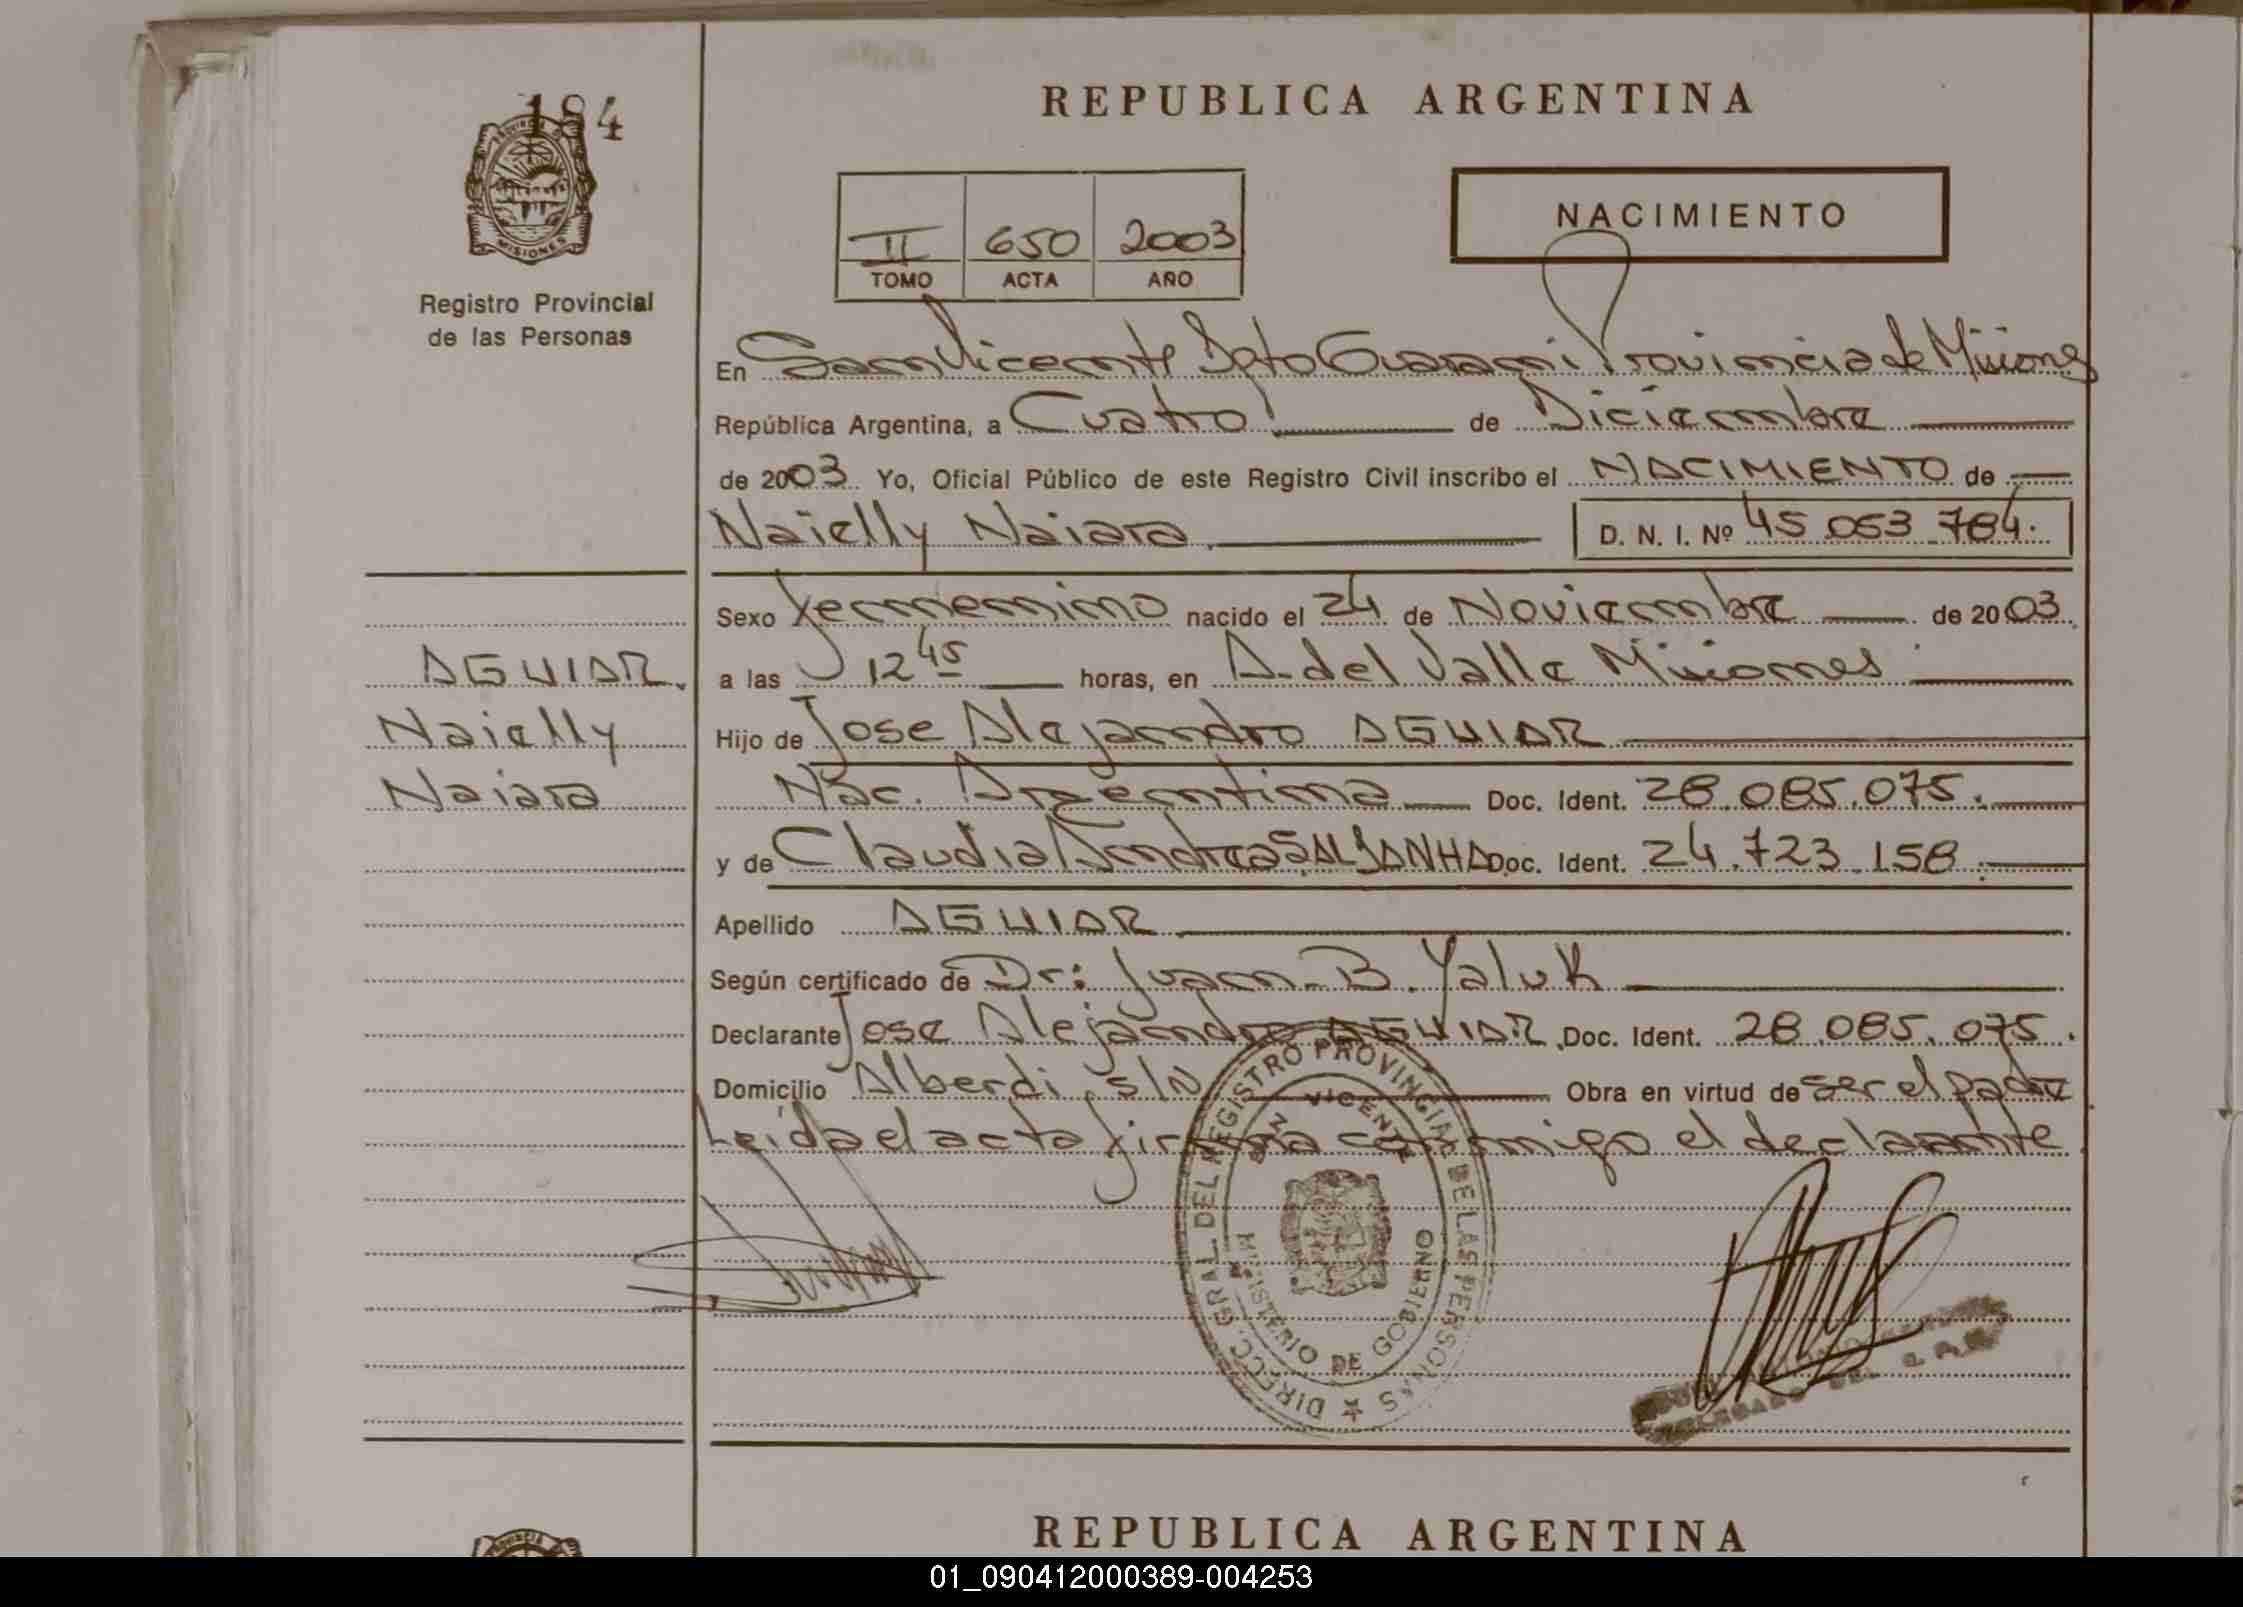 194
PROVINCIA DE
MISIONES
Registro Provincial
de las Personas
REPUBLICA ARGENTINA
II 650 2003
TOMO ACTA AÑO
NACIMIENTO
En San Vicente Dpto Guarani Provincia de Misiones
República Argentina, a Cuatro de Diciembre
de 2003 Yo, Oficial Público de este Registro Civil inscribo el NACIMIENTO de
Naielly Naiara D. N. I. Nº 45.053.784.
Sexo femenino nacido el 24 de Noviembre de 2003
a las 12 45 horas, en A. del Valle Misiones
Hijo de Jose Alejandro AGUIAR
Nac. Argentina Doc. Ident. 28.085.075.
y de Claudia Andrea SALDANHA Doc. Ident. 24.723.158
Apellido AGUIAR
Según certificado de Dr: Juan B. Yaluk
Declarante Jose Alejandro AGUIAR Doc. Ident. 28.085.075.
Domicilio Alberdi s/N Obra en virtud de ser el padre
Leida el acta firma conmigo el declarante
AGUIAR
Naielly
Naiara
DIRECC. GRAL. DEL REGISTRO PROVINCIAL DE LAS PERSONAS
SAN VICENTE
MINISTERIO DE GOBIERNO
DELEGADO DEL
PROVINCIA
REPUBLICA ARGENTINA
01_090412000389-004253